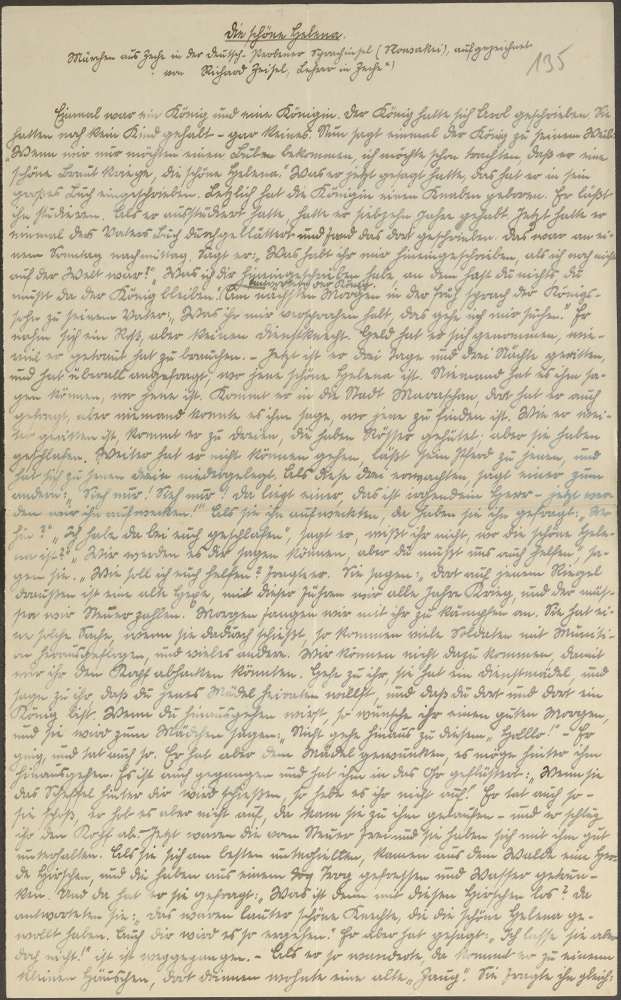 Die schöne Helena.
Märchen aus Zeche in der Deutsch-Probener Sprachinsel (Slowakei), aufgezeichnet
von Richard Zeisel, Lehrer in Zeche.
135
Einmal war ein König und eine Königin. Der König hatte sich geschrieben. Sie
hatten noch kein Kind gehabt – gar keines. Nun sagt einmal der König zu seinem Weib:
"Wenn wir nur möchten einen Buben bekommen, ich möchte schon trachten daß er eine
schöne Braut kriegt, die schöne Helena." Was er jetzt gesagt hatte, das hat er in sein
großes Buch eingeschrieben. Letzlich hat die Königin einen Knaben geboren. Er läßt
ihn studieren. Als er ausstudiert hatte, hatte er siebzehn Jahre gehabt. Jetzt hatte er
einmal des Vaters Buch durchgeblättert und fand das dort geschrieben. Das war an ei-
nem Sonntag nachmittag. Sagt er: "Was habt ihr mir hineingeschrieben, als ich noch nicht
auf der Welt war?" "Was ich dir hineingeschrieben habe, an dem hast du nichts, du
mußt da der König bleiben", der König. Am nächsten Morgen in der früh sprach der Königs-
sohn zu seinem Vater: "Was ihr mir versprochen habt, das gehe ich mir suchen." Er
nahm sich ein Roß, aber keinen Dienstknecht. Geld hat er sich genommen, wie-
viel er getraut hat zu brauchen. – Jetzt ist er drei Tage und drei Nächte geritten,
und hat überall angefragt, wo jene schöne Helena ist. Niemand hat es ihm sa-
gen können, wo jene ist. Kommt er in die Stadt Maraschan, dort hat er auch
gefragt, aber niemand konnte es ihm sage, wo jene zu finden ist. Wie er wei-
ter geritten ist, kommt er zu dreien, die haben Rösser gehütet; aber sie haben
geschlafen. Weiter hat er nicht können gehen, läßt sein Pferd zu jenen, und
hat sich zu jenen drein niedergelegt. Als diese drei erwachten, sagt einer zum
andern: "Seh mir! Seh mir! Da liegt einer, das ist ein Herr – jetzt wer-
den wir ihn aufwecken!" Als sie ihn aufweckten, da haben sie ihn gefragt: "Wo
hin?" "Ich habe da bei euch geschlafen", sagt er, "wißt ihr nicht, wo die schöne Hele-
na ist?" "Wir werden es dir sagen können, aber du mußt uns auch helfen", sa-
gen sie. "Wie soll ich euch helfen?" fragte er. Sie sagen: "dort auf jenem Riegel
draußen ist eine alte Hexe, mit dieser führen wir alle Jahre Krieg, und der müs-
sen wir Steuer zahlen. Morgen fangen wir mit ihr zu kämpfen an. Sie hat ei-
ne solche Sache, wenn sie dadurch schießt, so kommen viele Soldaten mit Muniti-
on herausgeflogen, und vieles andere. Wir können nicht dazu kommen, damit
wir ihr den Kopf abhacken könnten. Gehe zu ihr, sie hat ein Dienstmädel, und
sage zu ihr, daß du jenes Mädel heiraten willst, und daß du dort und dort ein
König bist. Wenn du hinausgehen wirst, so wünsche ihr einen guten Morgen,
und sie wird zum Mädchen sagen: "Nicht gehe hinaus zu diesem, Holllo!" – Er
ging, und tat auch so. Er hat aber dem Mädel gewunken, es möge hinter ihm
hinausgehen. Es ist auch gegangen und hat ihm in das Ohr geflüstert: "Wenn sie
das Scheffel hinter dir wird schießen, so hebe es ihr nicht auf!" Er tat auch so –
sie schoß, er hob es aber nicht auf, da kam sie zu ihm gelaufen – und er schlug
ihr den Kopf ab. Jetzt waren die vom Steuer frei und sie haben sich mit ihm gut
unterhalten. Als sie sich am besten unterhielten, kamen aus dem Walde eine Her-
de Hirschen, und die haben aus einem Trog gefressen und Wasser getrun-
ken. Und da hat er sie gefragt: "Was ist denn mit diesen Hirschen los?" Da
antworteten sie: "das waren lauter schöne Knechte, die die schöne Helena ge-
wollt haben. Auch dir wird es so ergehen." Er aber hat gesagt: "Ich lasse sie aber
doch nicht!" ist ist weggegangen. – Als er so wanderte, da kommt er zu einem
kleinen Häuschen, dort drinnen wohnte eine alte "Zauz". Sie fragte ihn gleich: